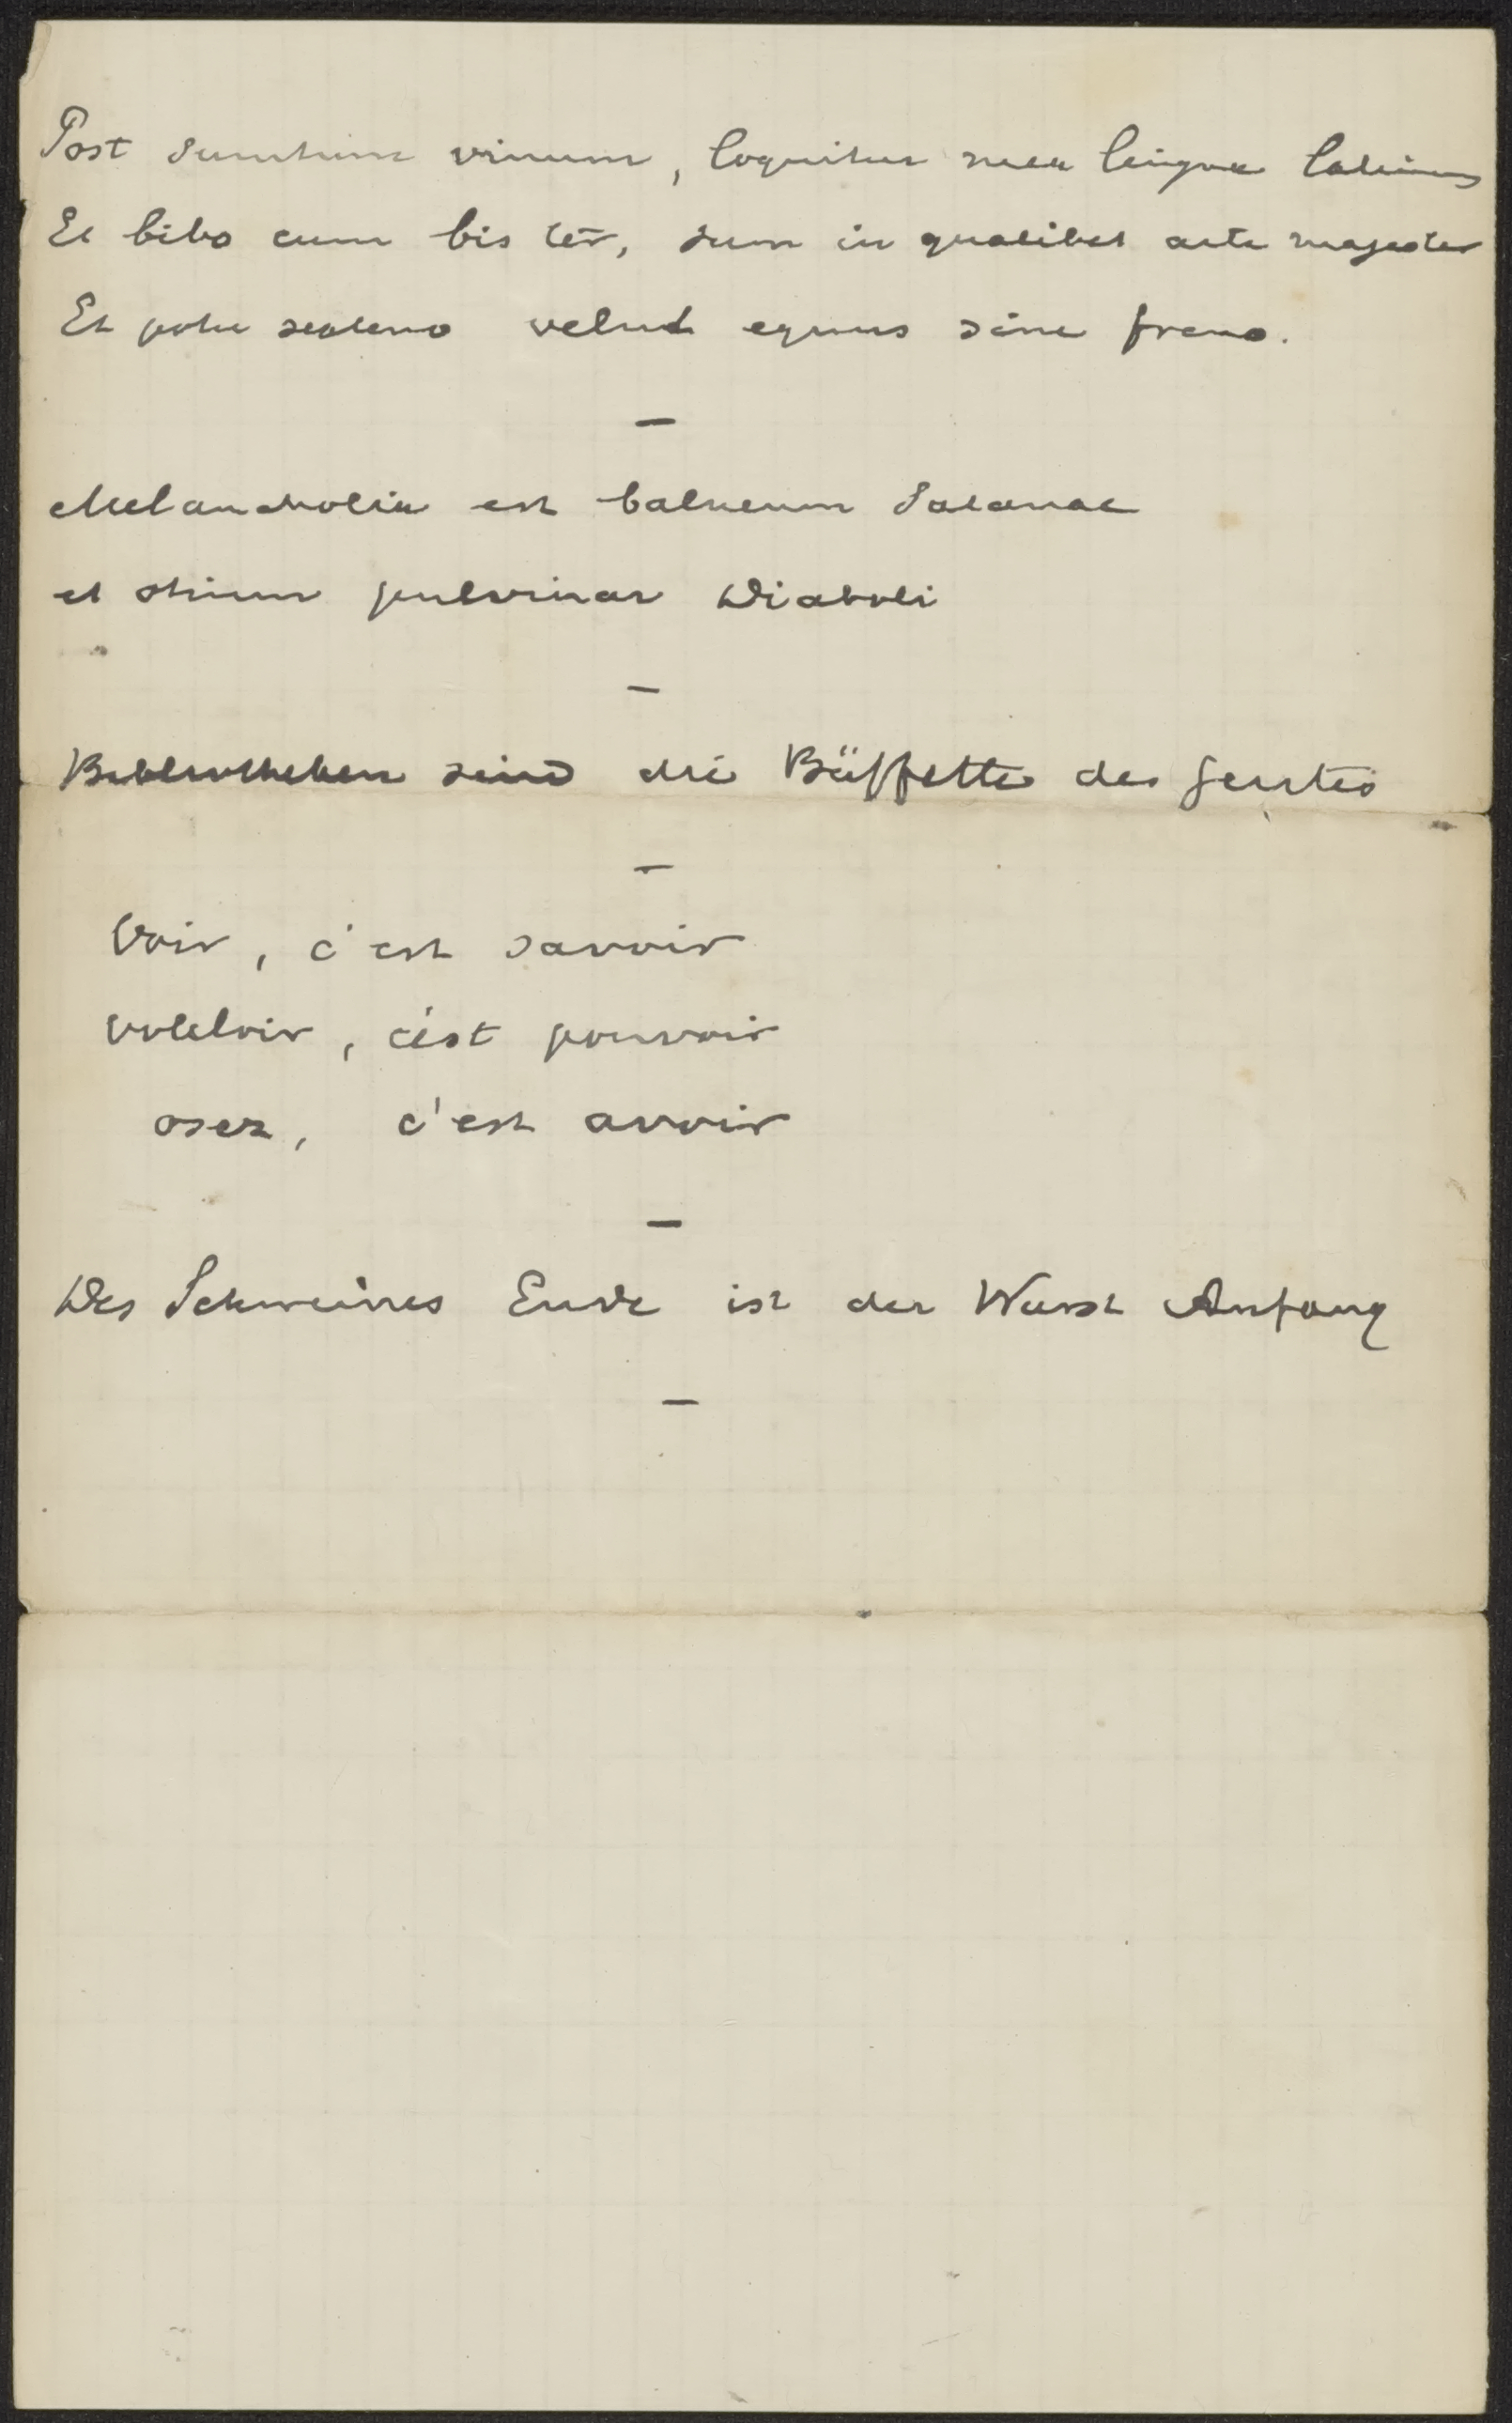 Post sumtum vinum, loquitur mea lingua latinus
Et bibo cum bis ter, sum in qualibet arte magister
Et potu sexteno velud equus sine freno.
—
Melancholia est balneum Satanae
et otium pulvinar Diaboli
—
Bibliotheken sind die Büffette des Geistes
—
Voir, c'est savoir
vouloir, c'est pouvoir
osez, c'est avoir
—
Des Schweines Ende ist der Wurst Anfang
—